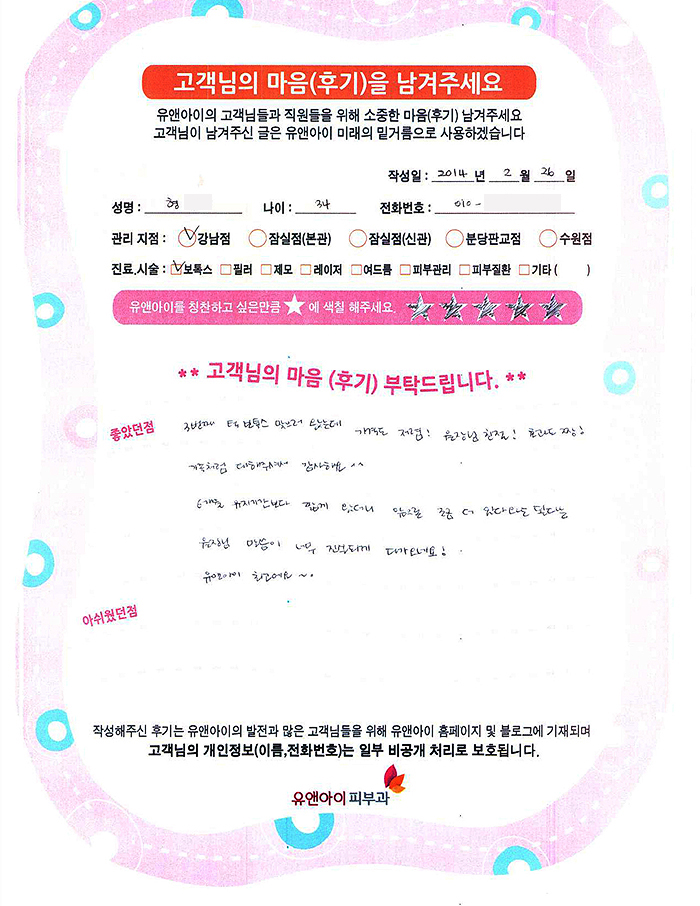 고객님의 마음(후기)을 남겨주세요
유앤아이의 고객님들과 직원들을 위해 소중한 마음(후기) 남겨주세요
고객님이 남겨주신 글은 유앤아이 미래의 밑거름으로 사용하겠습니다
작성일 : 2014 년 2 월 26 일
성명 : 형 나이 : 34 전화번호 : 010 -
관리 지점 : 강남점 잠실점(본관) 잠실점(신관) 분당판교점 수원점
진료,시술 : 보톡스 필러 제모 레이저 여드름 피부관리 피부질환 기타 ( )
유앤아이를 칭찬하고 싶은만큼 ★ 에 색칠 해주세요.
** 고객님의 마음 (후기) 부탁드립니다. **
좋았던점
3번째 보톡스 맞으러 왔는데 가격도 저렴! 원장님 친절! 효과도 짱!
가족처럼 대해주셔서 감사해요 ^^
6개월 유지기간보다 짧게 왔더니 앞으로 조금 더 있다오라는
원장님 말씀이 너무 진실되게 다가오네요!
유앤아이 최고에요 ~.
아쉬웠던점
작성해주신 후기는 유앤아이의 발전과 많은 고객님들을 위해 유앤아이 홈페이지 및 블로그에 기재되며
고객님의 개인정보(이름,전화번호)는 일부 비공개 처리로 보호됩니다.
유앤아이피부과